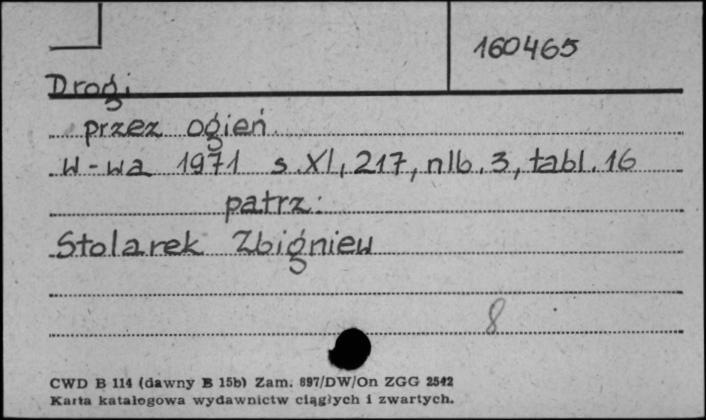 160465
Drogi
przez ogień
W-wa 1971 s. XI, 217, nlb. 3, tabl. 16
patrz:
Stolarek Zbigniew
8
CWD B 114 (dawny B 15b) Zam. 897/DW/On ZGG 2542
Karta katalogowa wydawnictw ciągłych i zwartych.